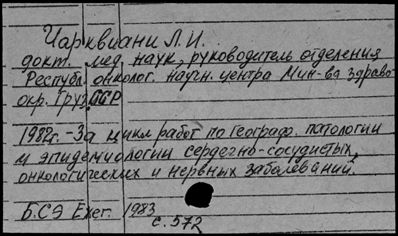 Чарквиани Л.И.
докт. мед. наук, руководитель отделения
Республ. онколог. научн. центра Мин-ва здраво-
охр. Груз.ССР
1982г. - За цикл работ по географ. патологии
и эпидемиологии сердечно-сосудистых,
онкологических и нервных заболеваний.
БСЭ Ежег. 1983
с. 572